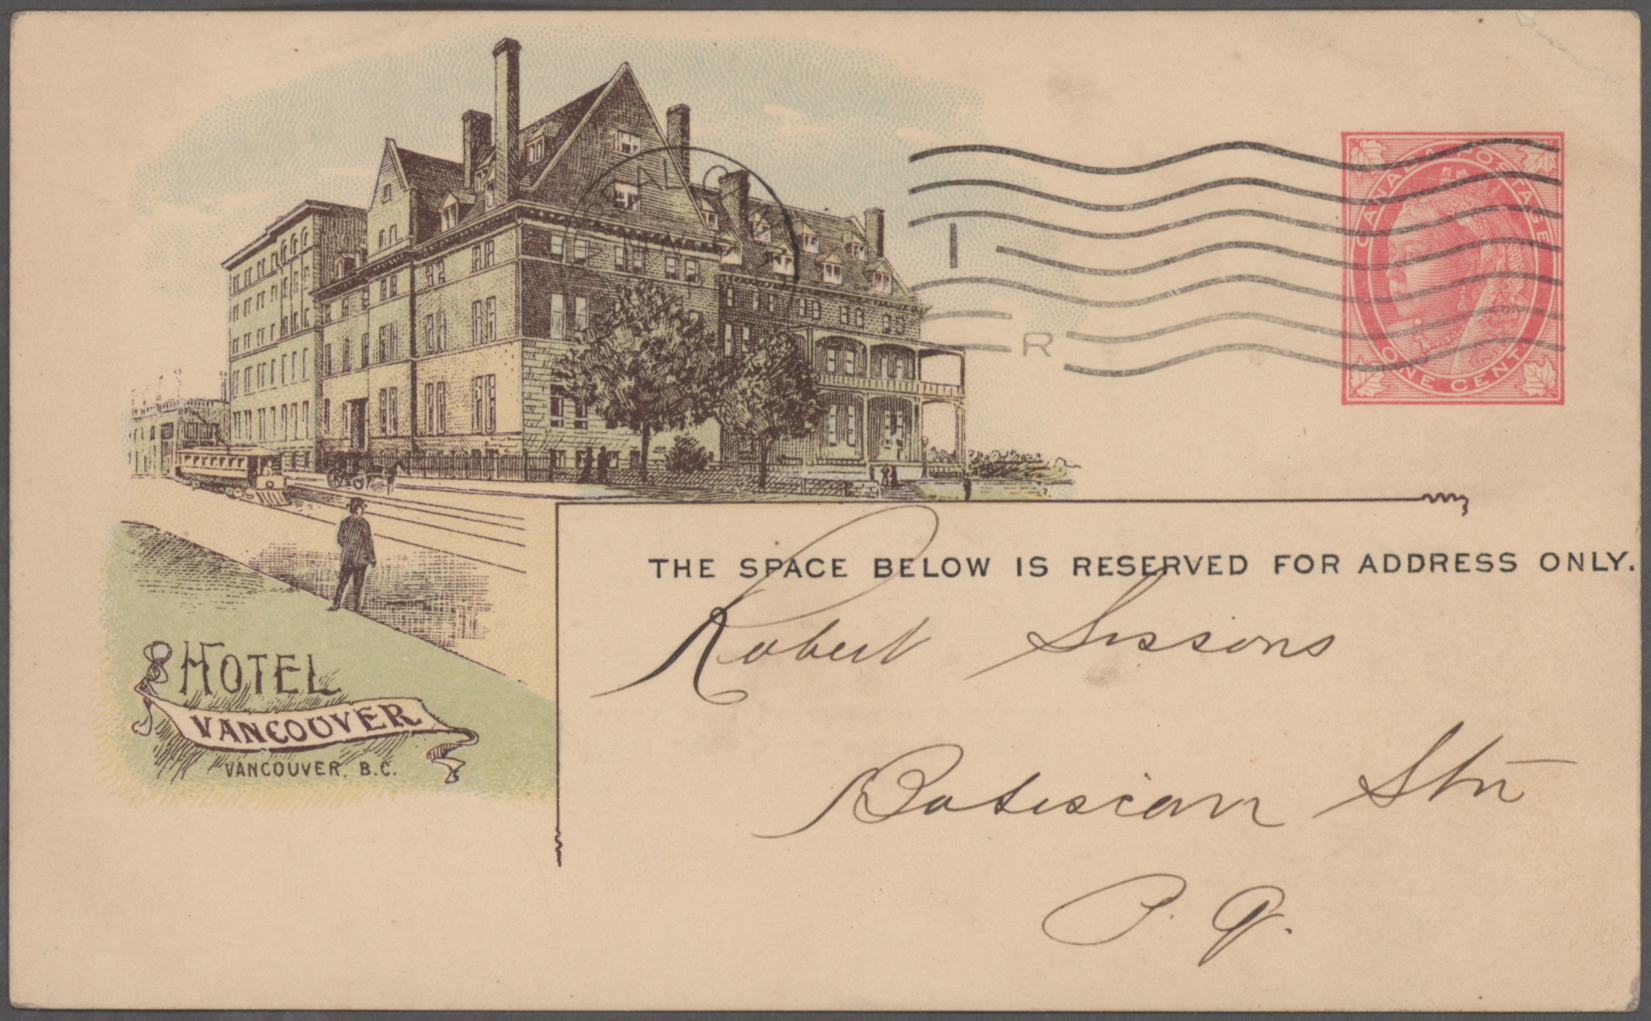 CANADA POSTAGE
ONE CENT
I
R
THE SPACE BELOW IS RESERVED FOR ADDRESS ONLY.
Robert Sissons
Batiscan Stn
P. Q.
HOTEL
VANCOUVER
VANCOUVER, B.C.